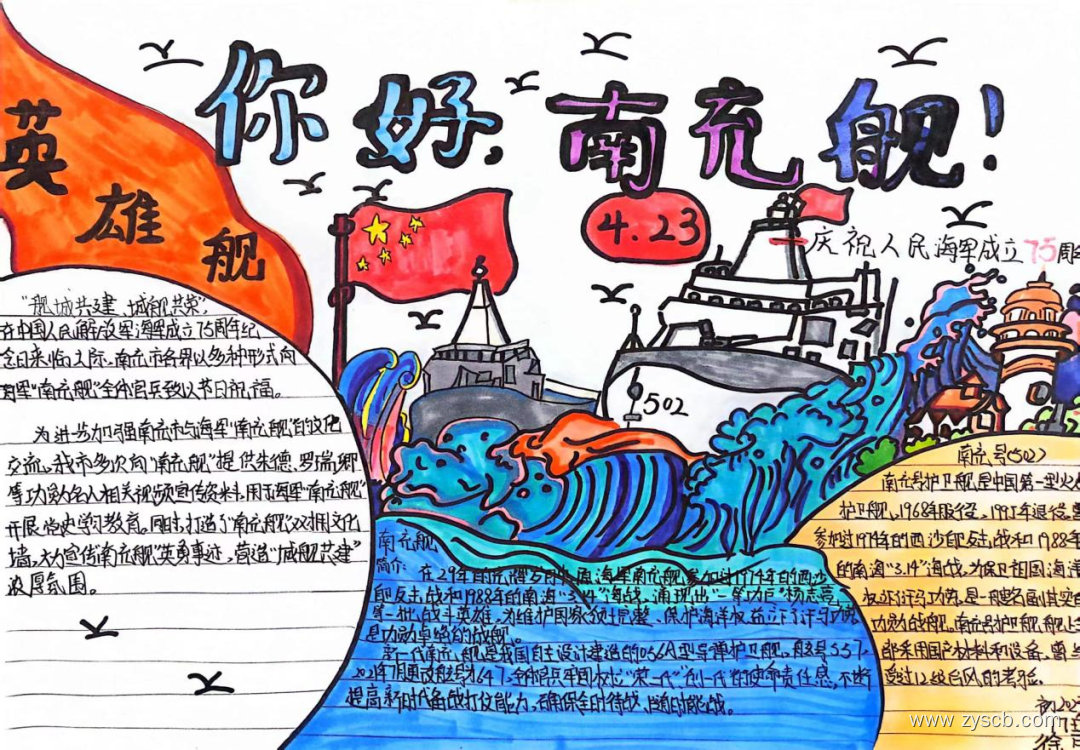 你好,南充舰!
英雄舰
4.23
庆祝人民海军成立75周
502
"舰城共建、城舰共荣",
在中国人民解放军海军成立75周年纪
念日来临之际,南充市各界以多种形式向
海军"南充舰"全体官兵致以节日祝福。
为进一步加强南充市与海军"南充舰"的文化
交流,我市多次向"南充舰"提供朱德、罗瑞卿
等功勋名人相关视频宣传资料,用于海军"南充舰"
开展党史学习教育,同时,打造了南充舰双拥文化
墙,大力宣传南充舰英勇事迹,营造"城舰共建"
浓厚氛围。
南充舰
简介:在29年的光辉岁月中,原海军南充舰参加过1974年的西沙
印反击战和1988年的南海"3.14"海战,涌现出"一等功臣"杨志亮
等一批战斗英雄,为维护国家领土完整、保护海洋权益立下了汗马功劳
是功勋卓绝的战舰。
新一代南充舰是我国自主设计建造的056A型导弹护卫舰,舷号55
2021年7月更改舷号为647,全体官兵牢固树立
的使命责任感,不断
提高新时代备战打仗能力,确保全时待战、随时能战。
南充号(502)
南充号护卫舰,是中国第一型
护卫舰,1968年服役,1995年退役,曾
参加过1974年的西沙印反击战和1988年
的南海"3.14"海战,为保卫祖国海洋
权立下汗马功劳,是一艘名副其实的
功勋战舰。南充号护卫舰,舰上全
部采用国产材料和设备,曾
受过12级台风的考验。
www.zyscb.com